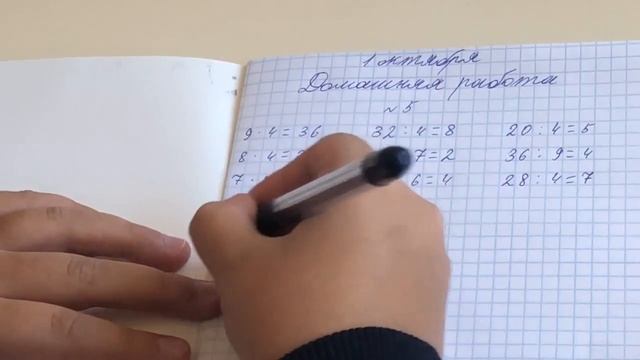 1 октября
Домашняя работа
№ 5
9 · 4 = 36 32 : 4 = 8 20 : 4 = 5
8 · 4 = 7 = 2 36 : 9 = 4
7 · 6 = 4 28 : 4 = 7